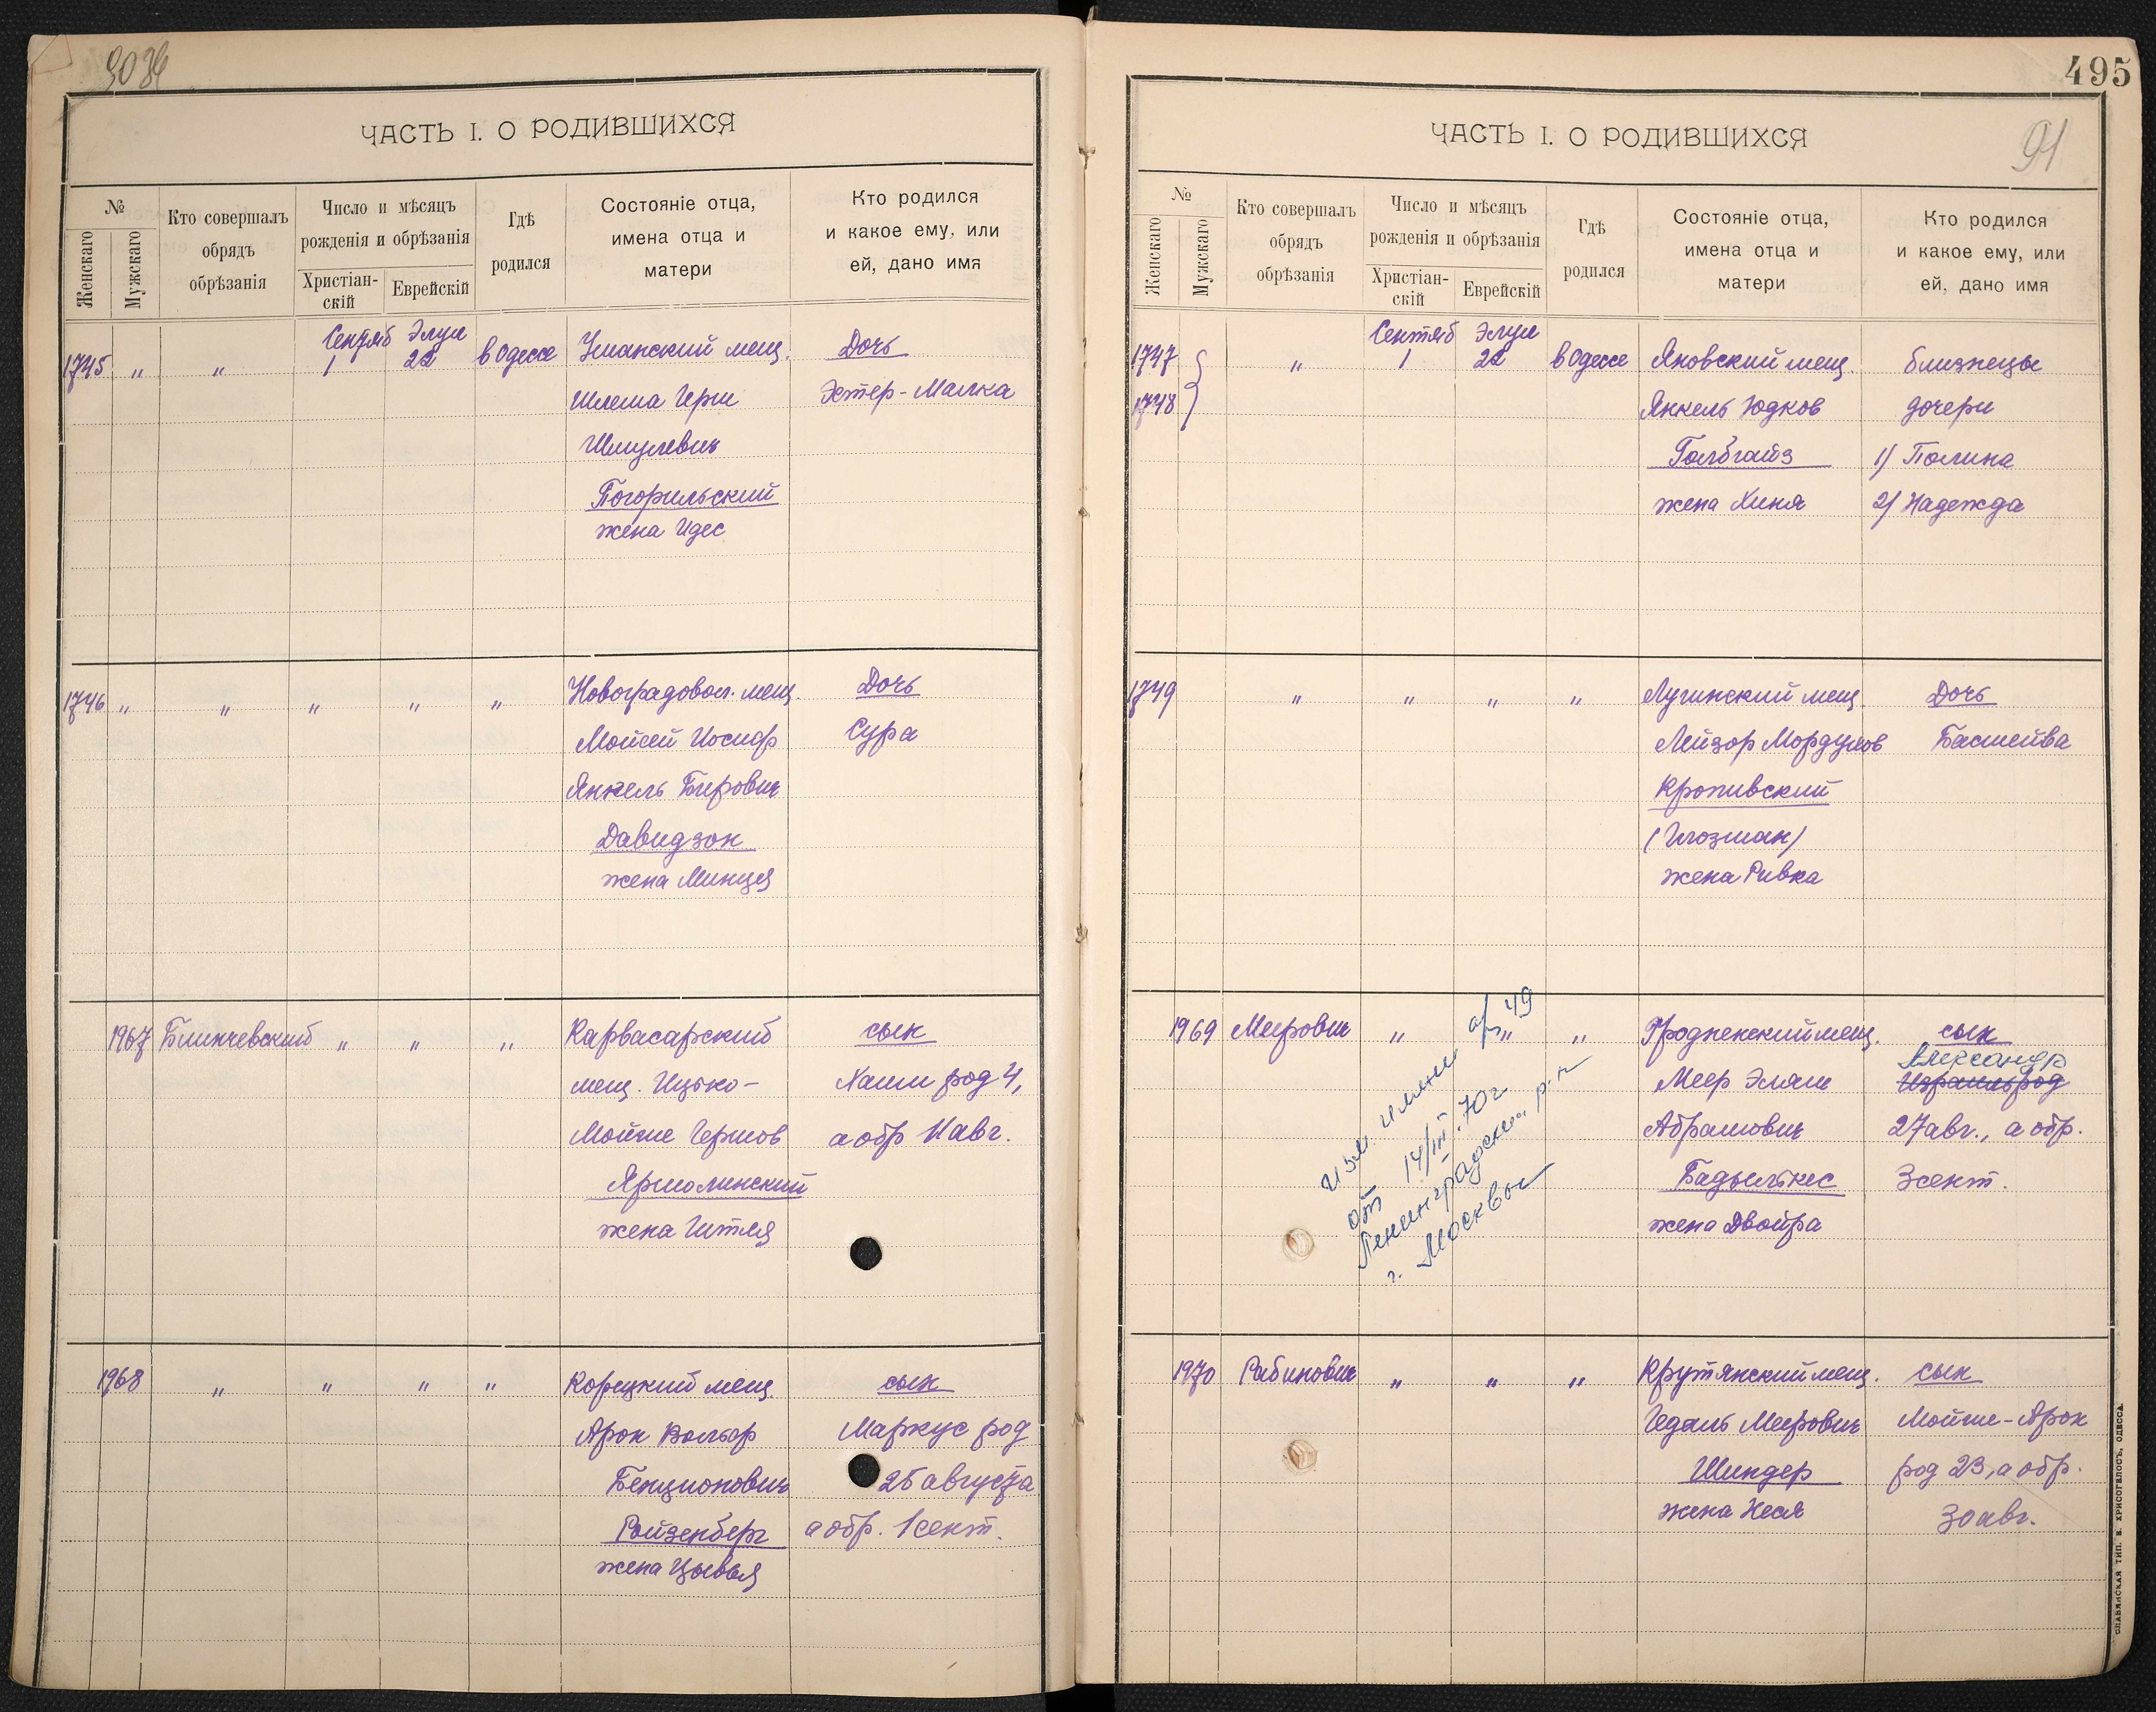 495
ЧАСТЬ I. О РОДИВШИХСЯ
№
Женскаго
Мужскаго
Кто совершалъ
обрядъ
обрѣзанія
Число и мѣсяцъ
рожденія и обрѣзанія
Христіан-
скій
Еврейскій
Гдѣ
родился
Состояніе отца,
имена отца и
матери
Кто родился
и какое ему, или
ей, дано имя
1745 " " Сентяб 1 Элул 22 в Одессе Уманский мещ. Дочь
Шлема Герш Эстер-Малка
Шмулевич
Погорильский
жена Идес
1746 " " " " " Новоградовол. мещ. Дочь
Мойсей Иосиф Сура
Янкель Берович
Давидзон
жена Минця
1967 " " " Карвасарский сын
мещ. Ицько- Хаим род 4,
Мойше Гершов а обр 11 авг.
Ярмолинский
жена Гитля
1968 " " " " Корецкий мещ. сын
Арон Вольф Маркус род
Бенционович 25 августа
Ройзенберг а обр. 1 сент.
жена Цывья
ЧАСТЬ I. О РОДИВШИХСЯ
91
№
Женскаго
Мужскаго
Кто совершалъ
обрядъ
обрѣзанія
Число и мѣсяцъ
рожденія и обрѣзанія
Христіан-
скій
Еврейскій
Гдѣ
родился
Состояніе отца,
имена отца и
матери
Кто родился
и какое ему, или
ей, дано имя
1747 " Сентяб 1 Элул 22 в Одессе Яновский мещ. близнецы
1748 Янкель Юдков дочери
1) Полина
жена Хиня 2) Надежда
1749 " " " " Лугинский мещ. Дочь
Лейзор Мордухов Басшейва
Кропивский
(Глозман)
жена Ривка
1969 Меерович " " " Гродненский мещ. сын
Александр
Меер Эльяш Израиль род
Абрамович 27 авг., а обр.
3 сент.
жена Двойра
Изм. имени а/з 49
от 14/III.70 г.
Ленинградским р-н
г. Москвы
1970 Рабинович " " " Крутянский мещ. сын
Гедаль Меерович Мойше-Арон
Шиндер род 23, а обр.
жена Хеся 30 авг.
СЛАВЯНСКАЯ ТИП. Н. ХРИСОГЕЛОСЪ, ОДЕССА